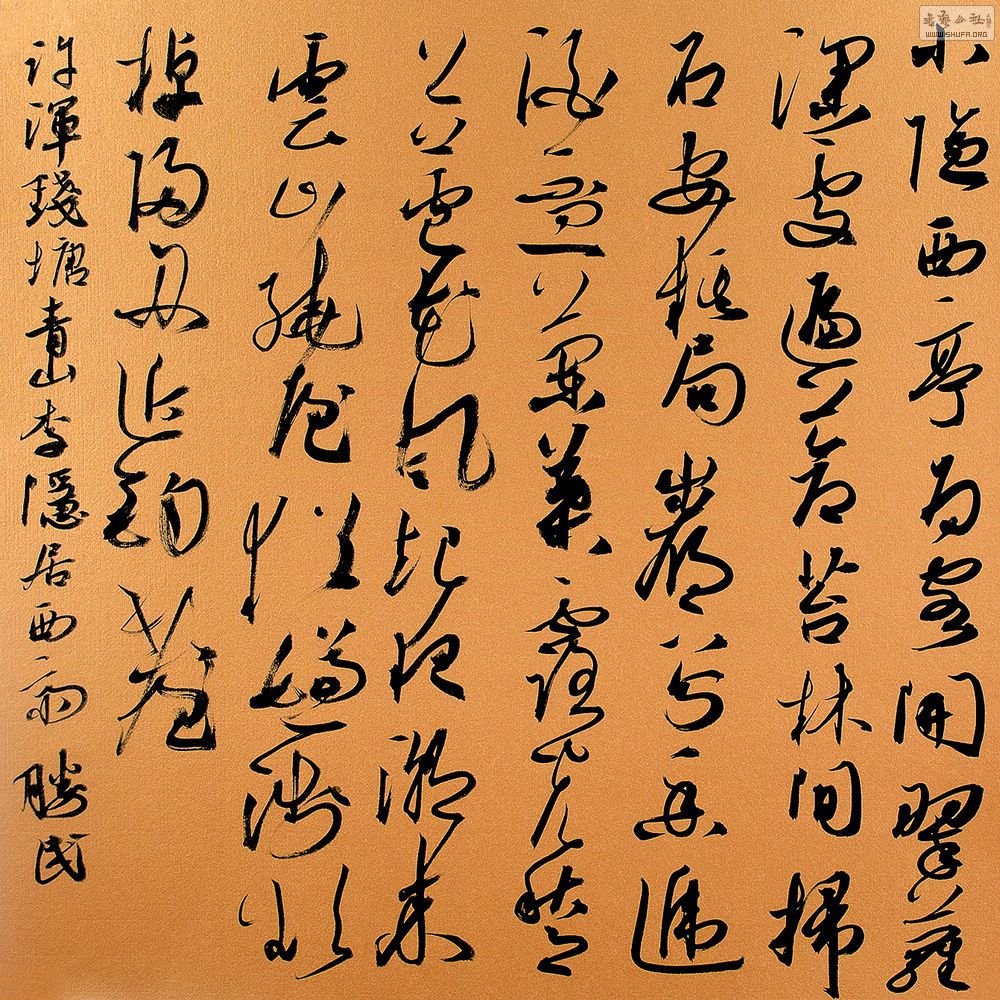 小隐西亭为客開翠蘿
深处遍青苔林间掃
石安棋局巖下分泉遞
酒盃蘭葉露光秋月
上蘆花風起夜潮来
雲山繞屋猶嫌淺欲
棹漁舟近釣臺
许渾錢塘青山李隱居西斋 勝民
书艺公社
WWW.SHUFA.ORG